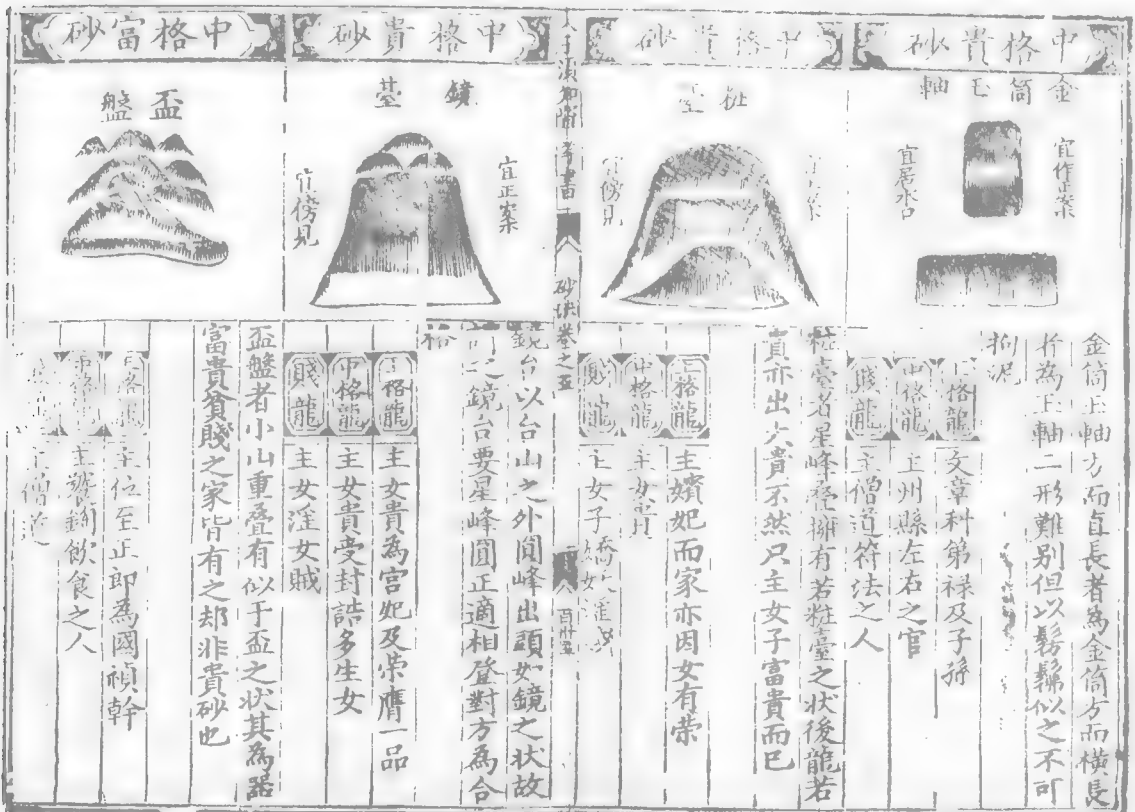 中格貴砂
金筒玉軸
宜作正案
宜居水口
金筒玉軸方而直長者為金筒方而橫長
者為玉軸二形難別但以髣髴似之不可
拘泥
上格龍 文章科第祿及子孫
中格龍 主州縣左右之官
賤龍 主僧道符法之人
中格貴砂
粧臺
宜傍見
粧臺者星峰疊擁有若粧臺之状後龍若
貴亦出大貴不然只主女子富貴而已
上格龍 主嬪妃而家亦因女有荣
中格龍 主女貴
賤龍 主女子
人子須知
砂法卷之五
中格貴砂
鏡臺
宜正案
宜傍見
鏡台以台山之外圓峰出頭如鏡之状故
謂之鏡台要星峰圓正適相登對方為合
格
上格龍 主女貴為宮妃及荣膺一品
中格龍 主女貴受封誥多生女
賤龍 主女淫女賊
中格富砂
盃盤
盃盤者小山重叠有似于盃之状其為器
富貴貧賤之家皆有之却非貴砂也
上格龍 主位至正郎為國禎幹
中格龍 主飲食之人
賤龍 主僧道